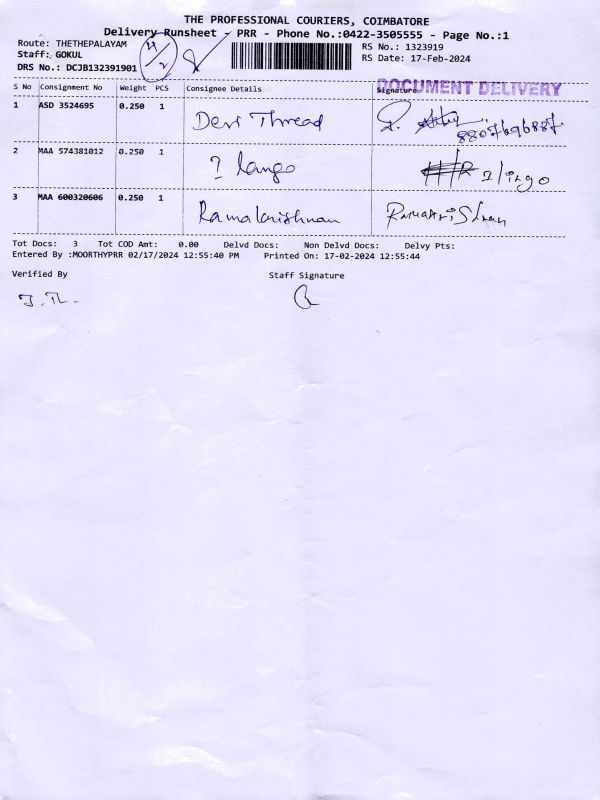 THE PROFESSIONAL COURIERS, COIMBATORE
Delivery Runsheet - PRR - Phone No.:0422-3505555 - Page No.:1
Route: THETHEPALAYAM
Staff: GOKUL
DRS No.: DCJB132391901
RS No.: 1323919
RS Date: 17-Feb-2024
DOCUMENT DELIVERY
S No Consignment No Weight PCS Consignee Details Signature
1 ASD 3524695 0.250 1 Devi Thread
8807696887
2 MAA 574381012 0.250 1 ? lango
3 MAA 600320606 0.250 1 Ramakrishnan
Tot Docs: 3 Tot COD Amt: 0.00 Delvd Docs: Non Delvd Docs: Delvy Pts:
Entered By :MOORTHYPRR 02/17/2024 12:55:40 PM Printed On: 17-02-2024 12:55:44
Verified By Staff Signature